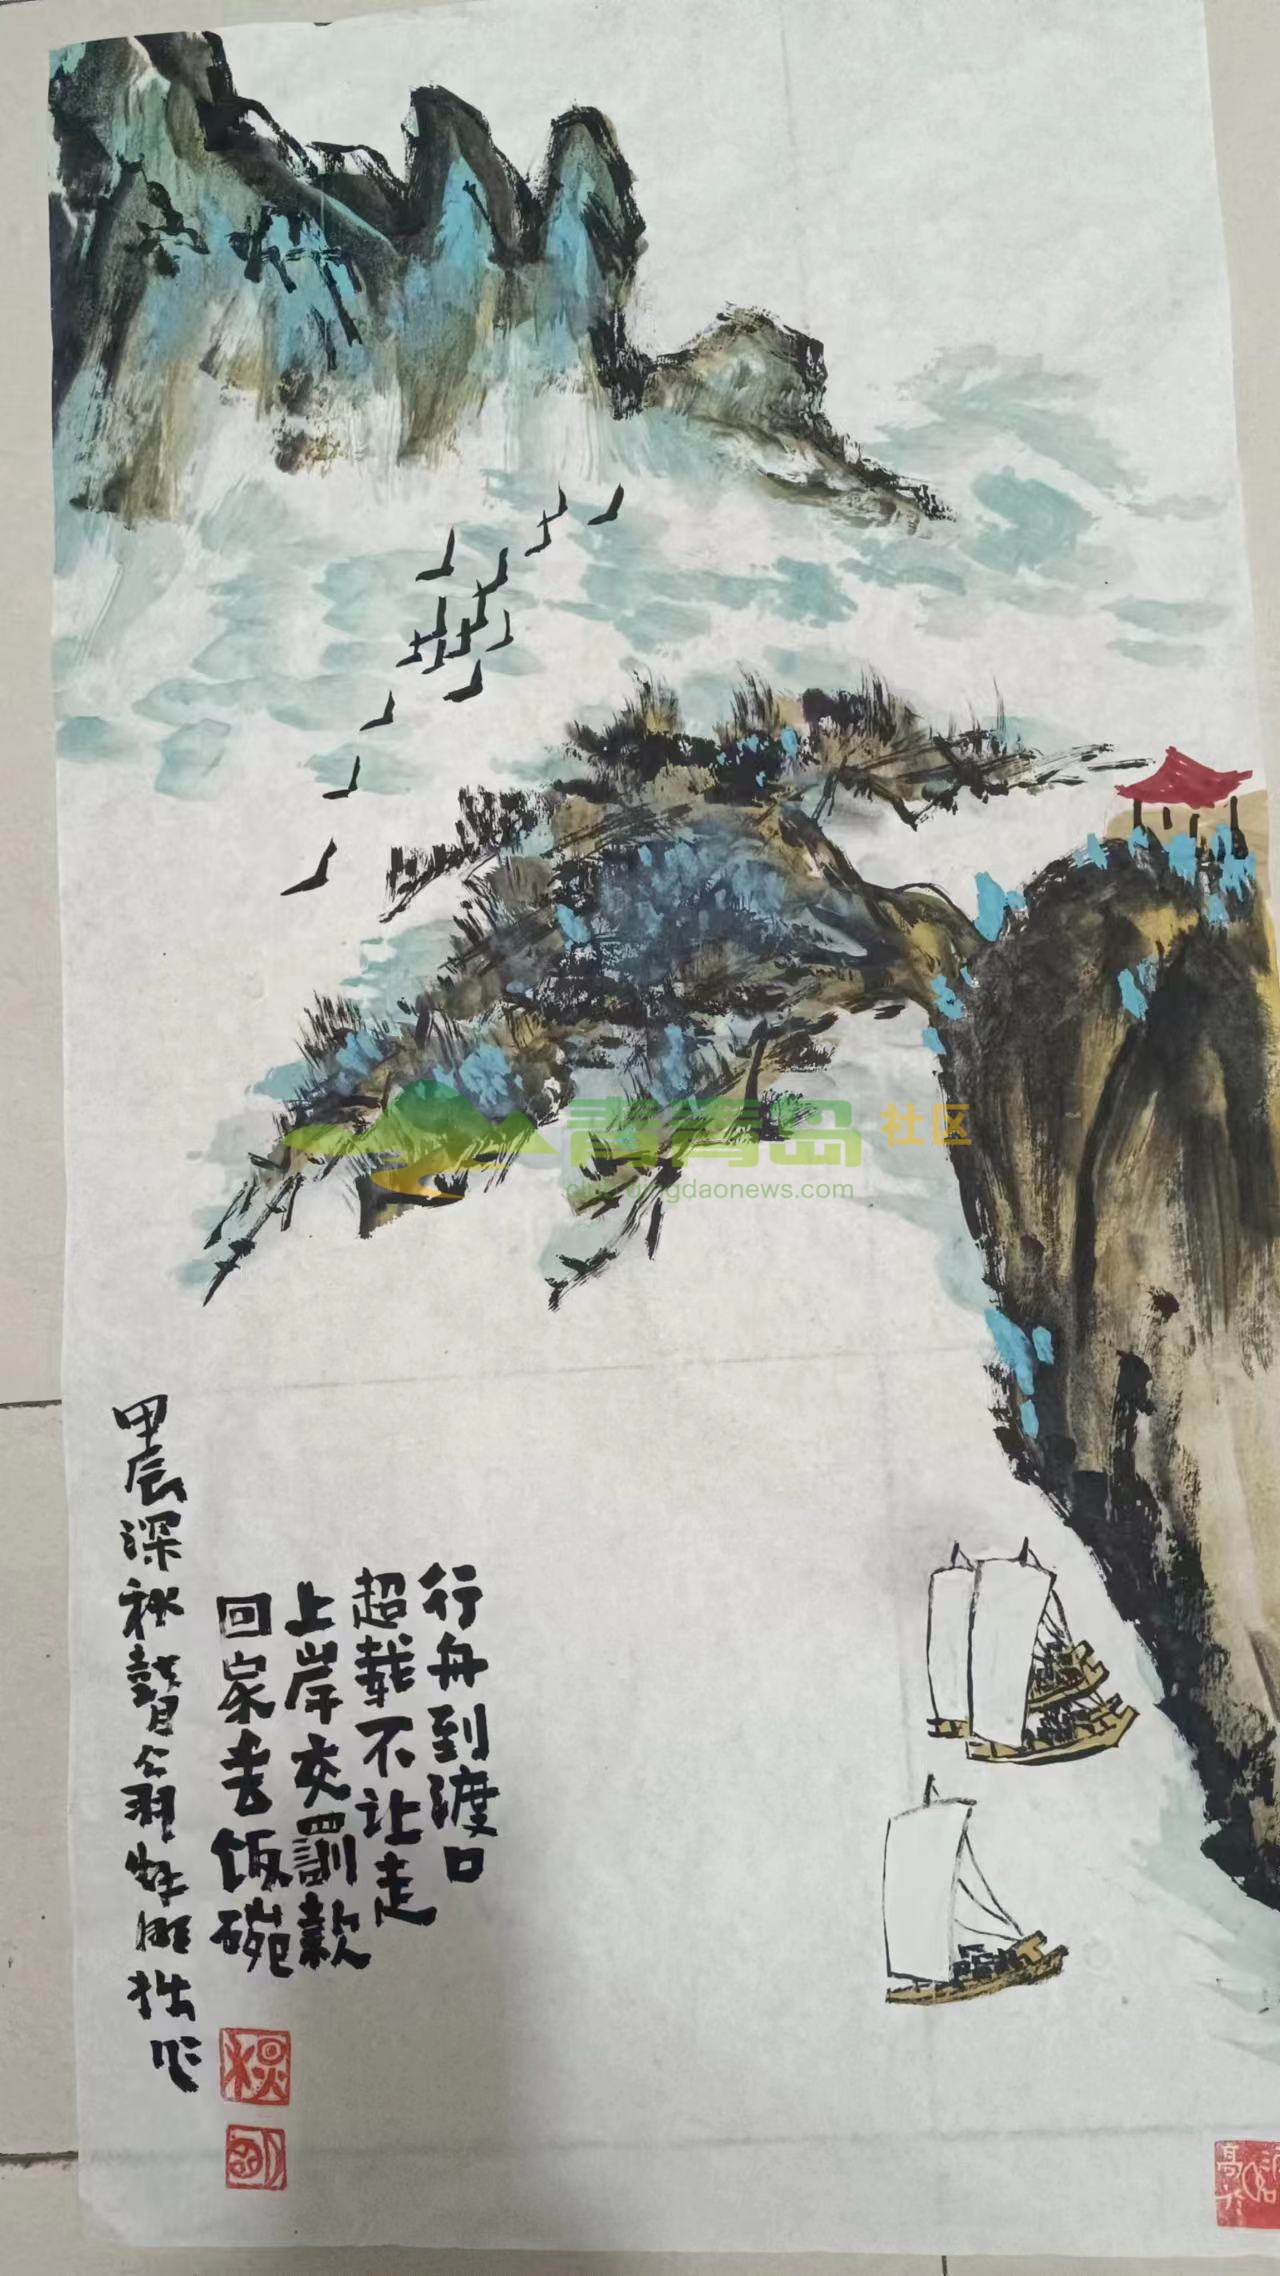 行舟到渡口
超载不让走
上岸交罰款
回家丢饭碗
甲辰深秋 拙作
青青岛 社区
club.qingdaonews.com